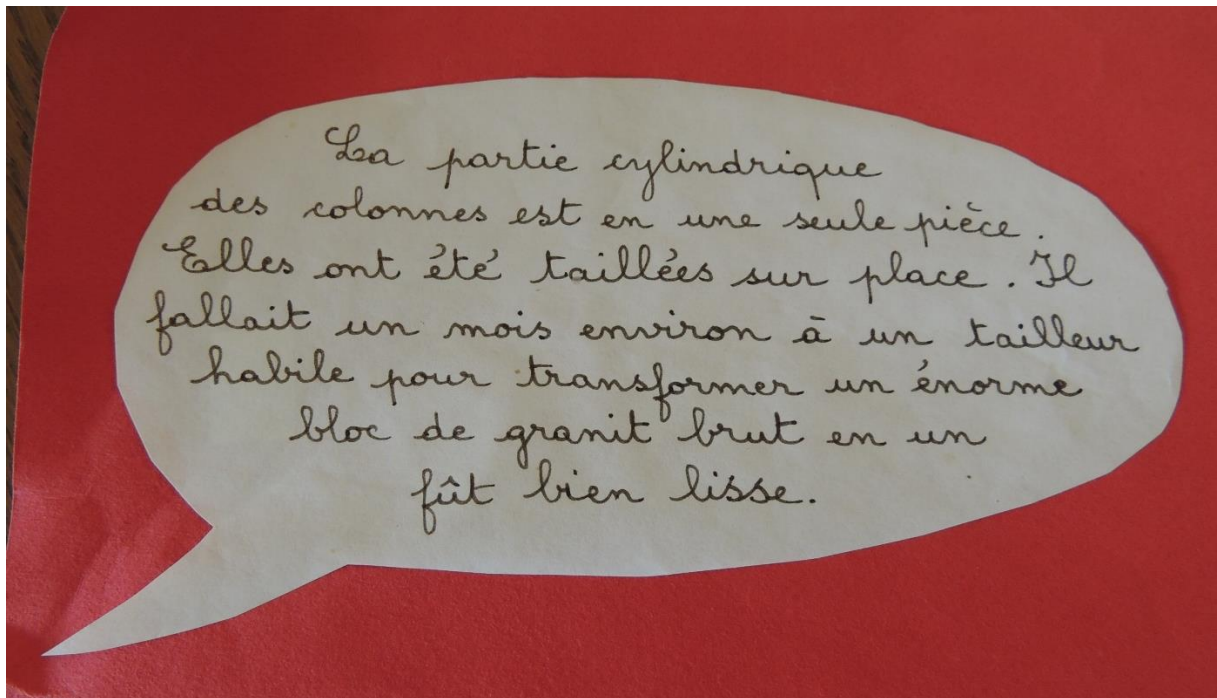 La partie cylindrique
des colonnes est en une seule pièce.
Elles ont été taillées sur place. Il
fallait un mois environ à un tailleur
habile pour transformer un énorme
bloc de granit brut en un
fût bien lisse.